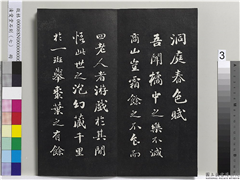 洞庭春色賦
吾聞橘中之樂不減
商山豈霜餘之不食而
四老人者游戲於其間
悟此世之泡幻藏千里
於一班舉棗葉之有餘
3